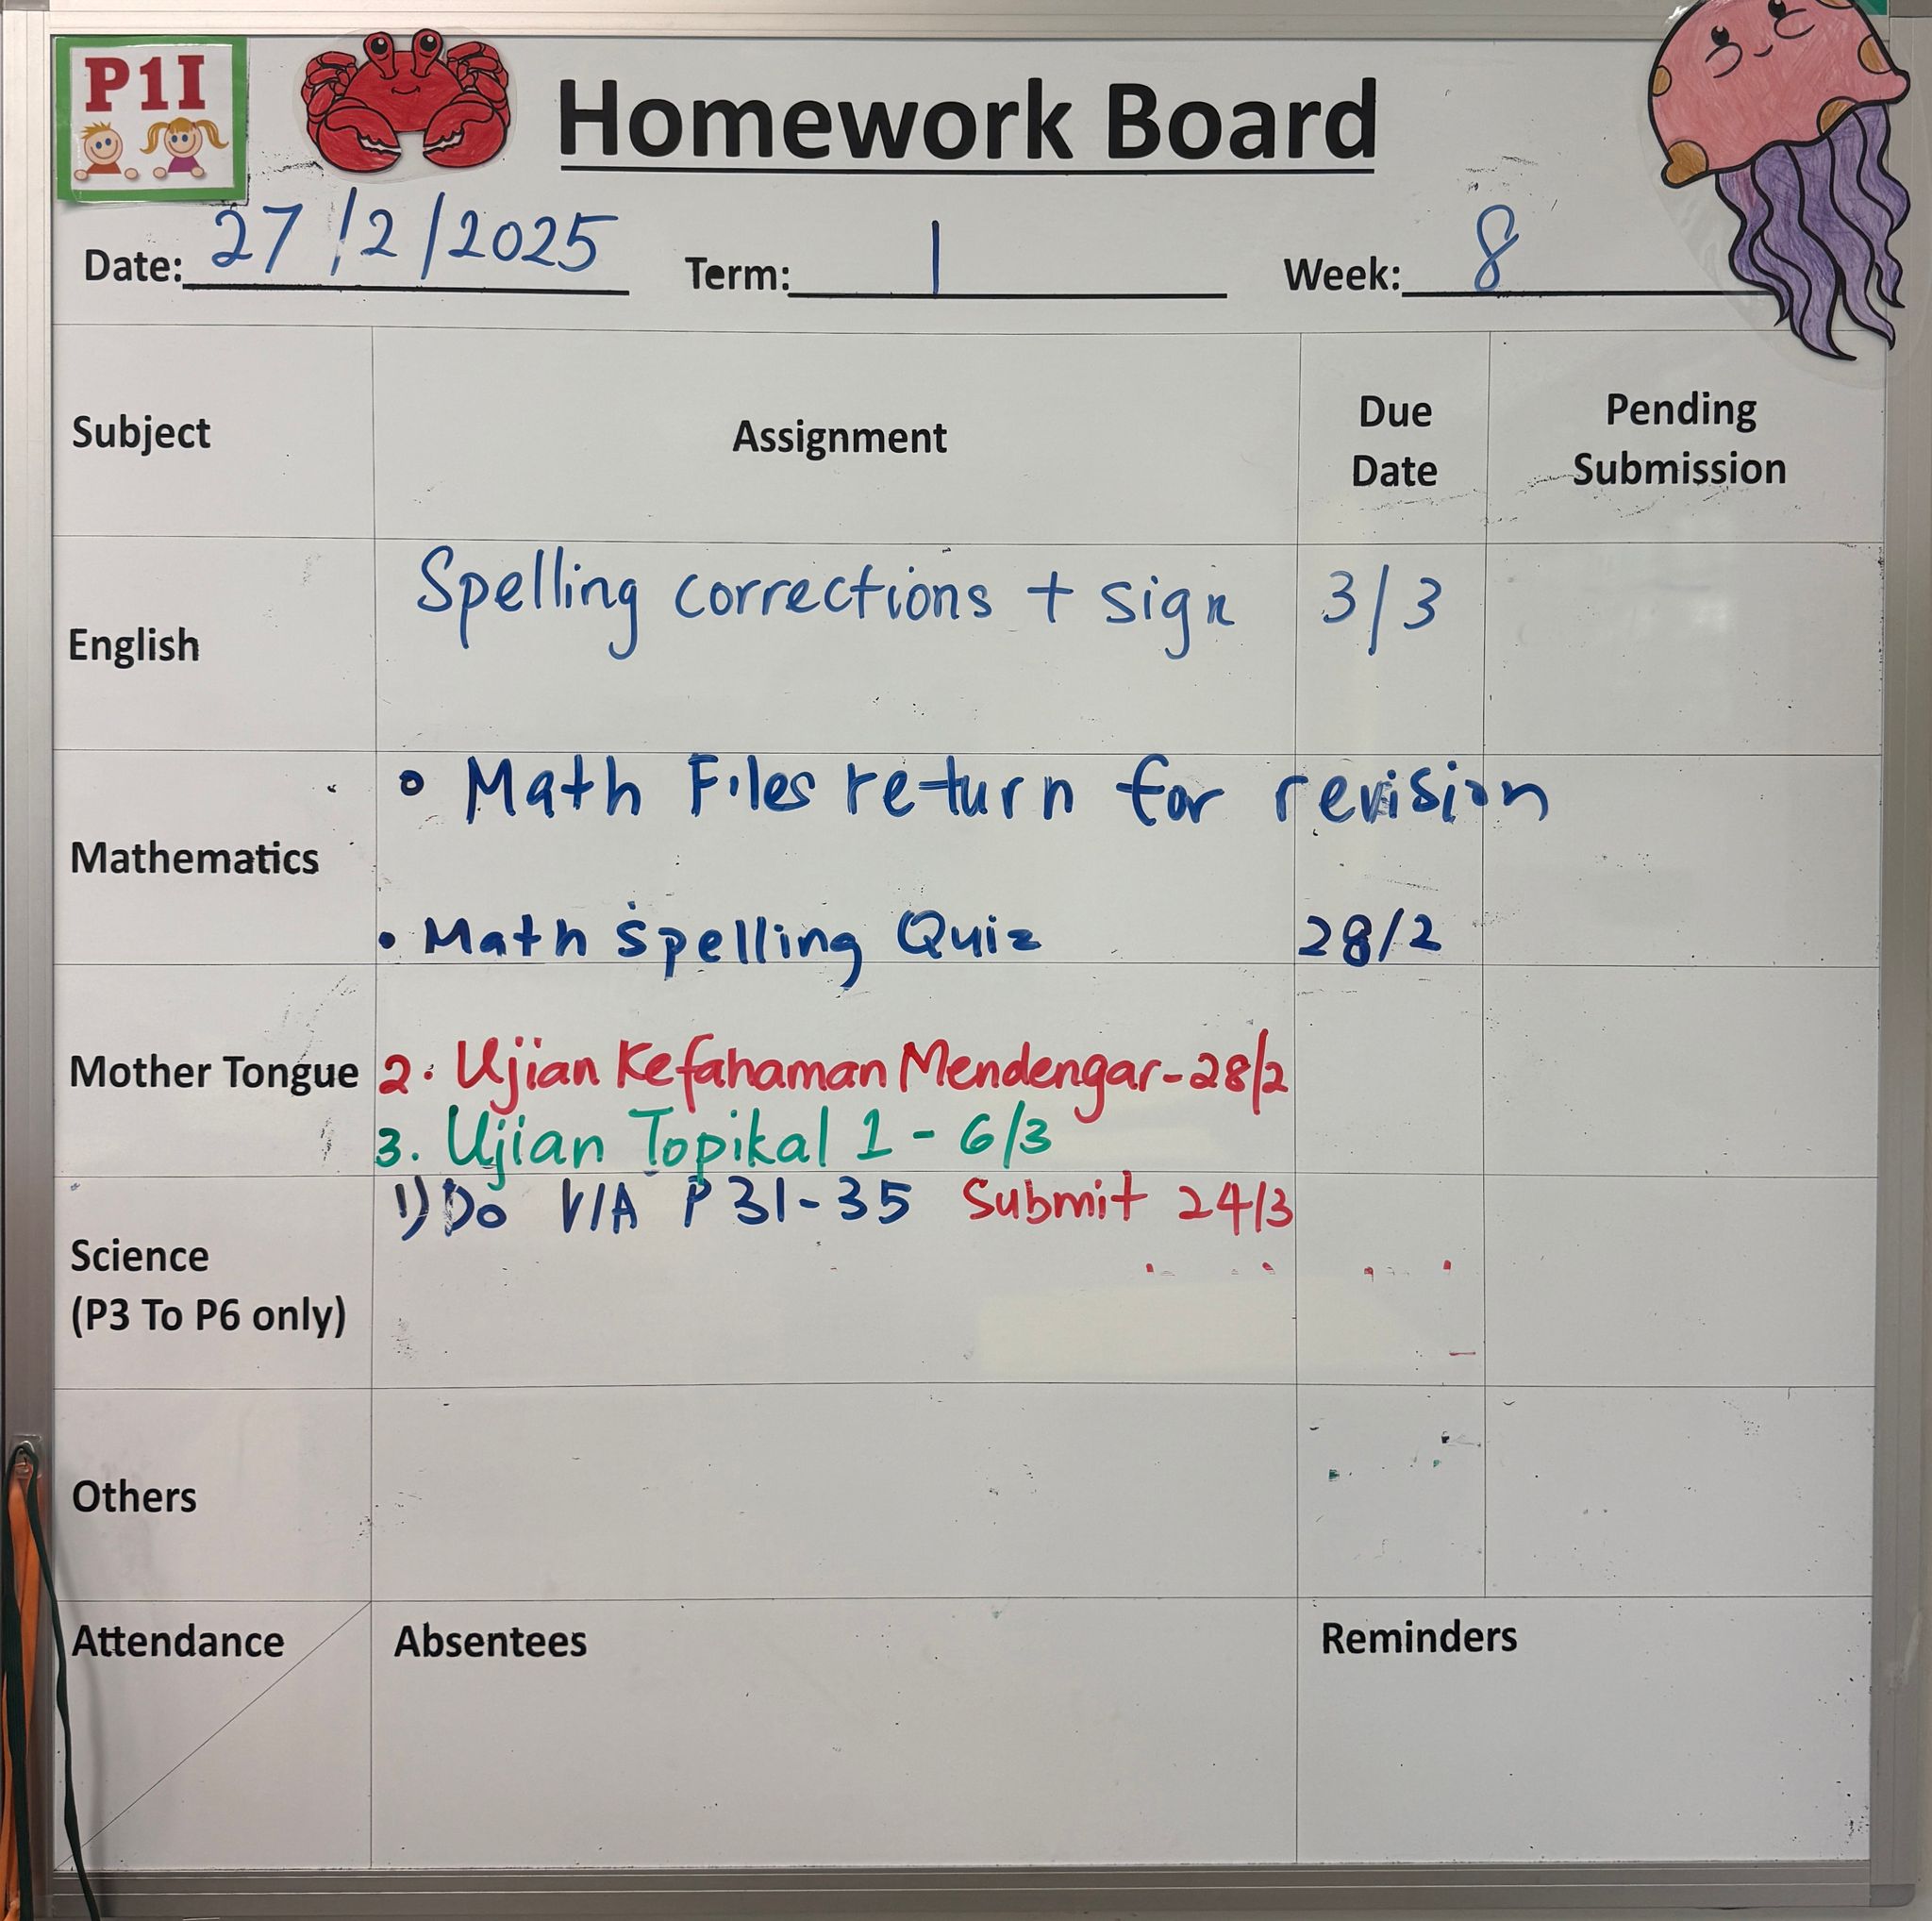 P1I
Homework Board
Date: 27/2/2025 Term: 1 Week: 8
Subject Assignment Due Date Pending Submission
English Spelling corrections + sign 3/3
Mathematics
• Math Files return for revision
• Math Spelling Quiz 28/2
Mother Tongue 2. Ujian Kefahaman Mendengar - 28/2
3. Ujian Topikal 1 - 6/3
1) Do V/A P 31-35 Submit 24/3
Science
(P3 To P6 only)
Others
Attendance Absentees Reminders